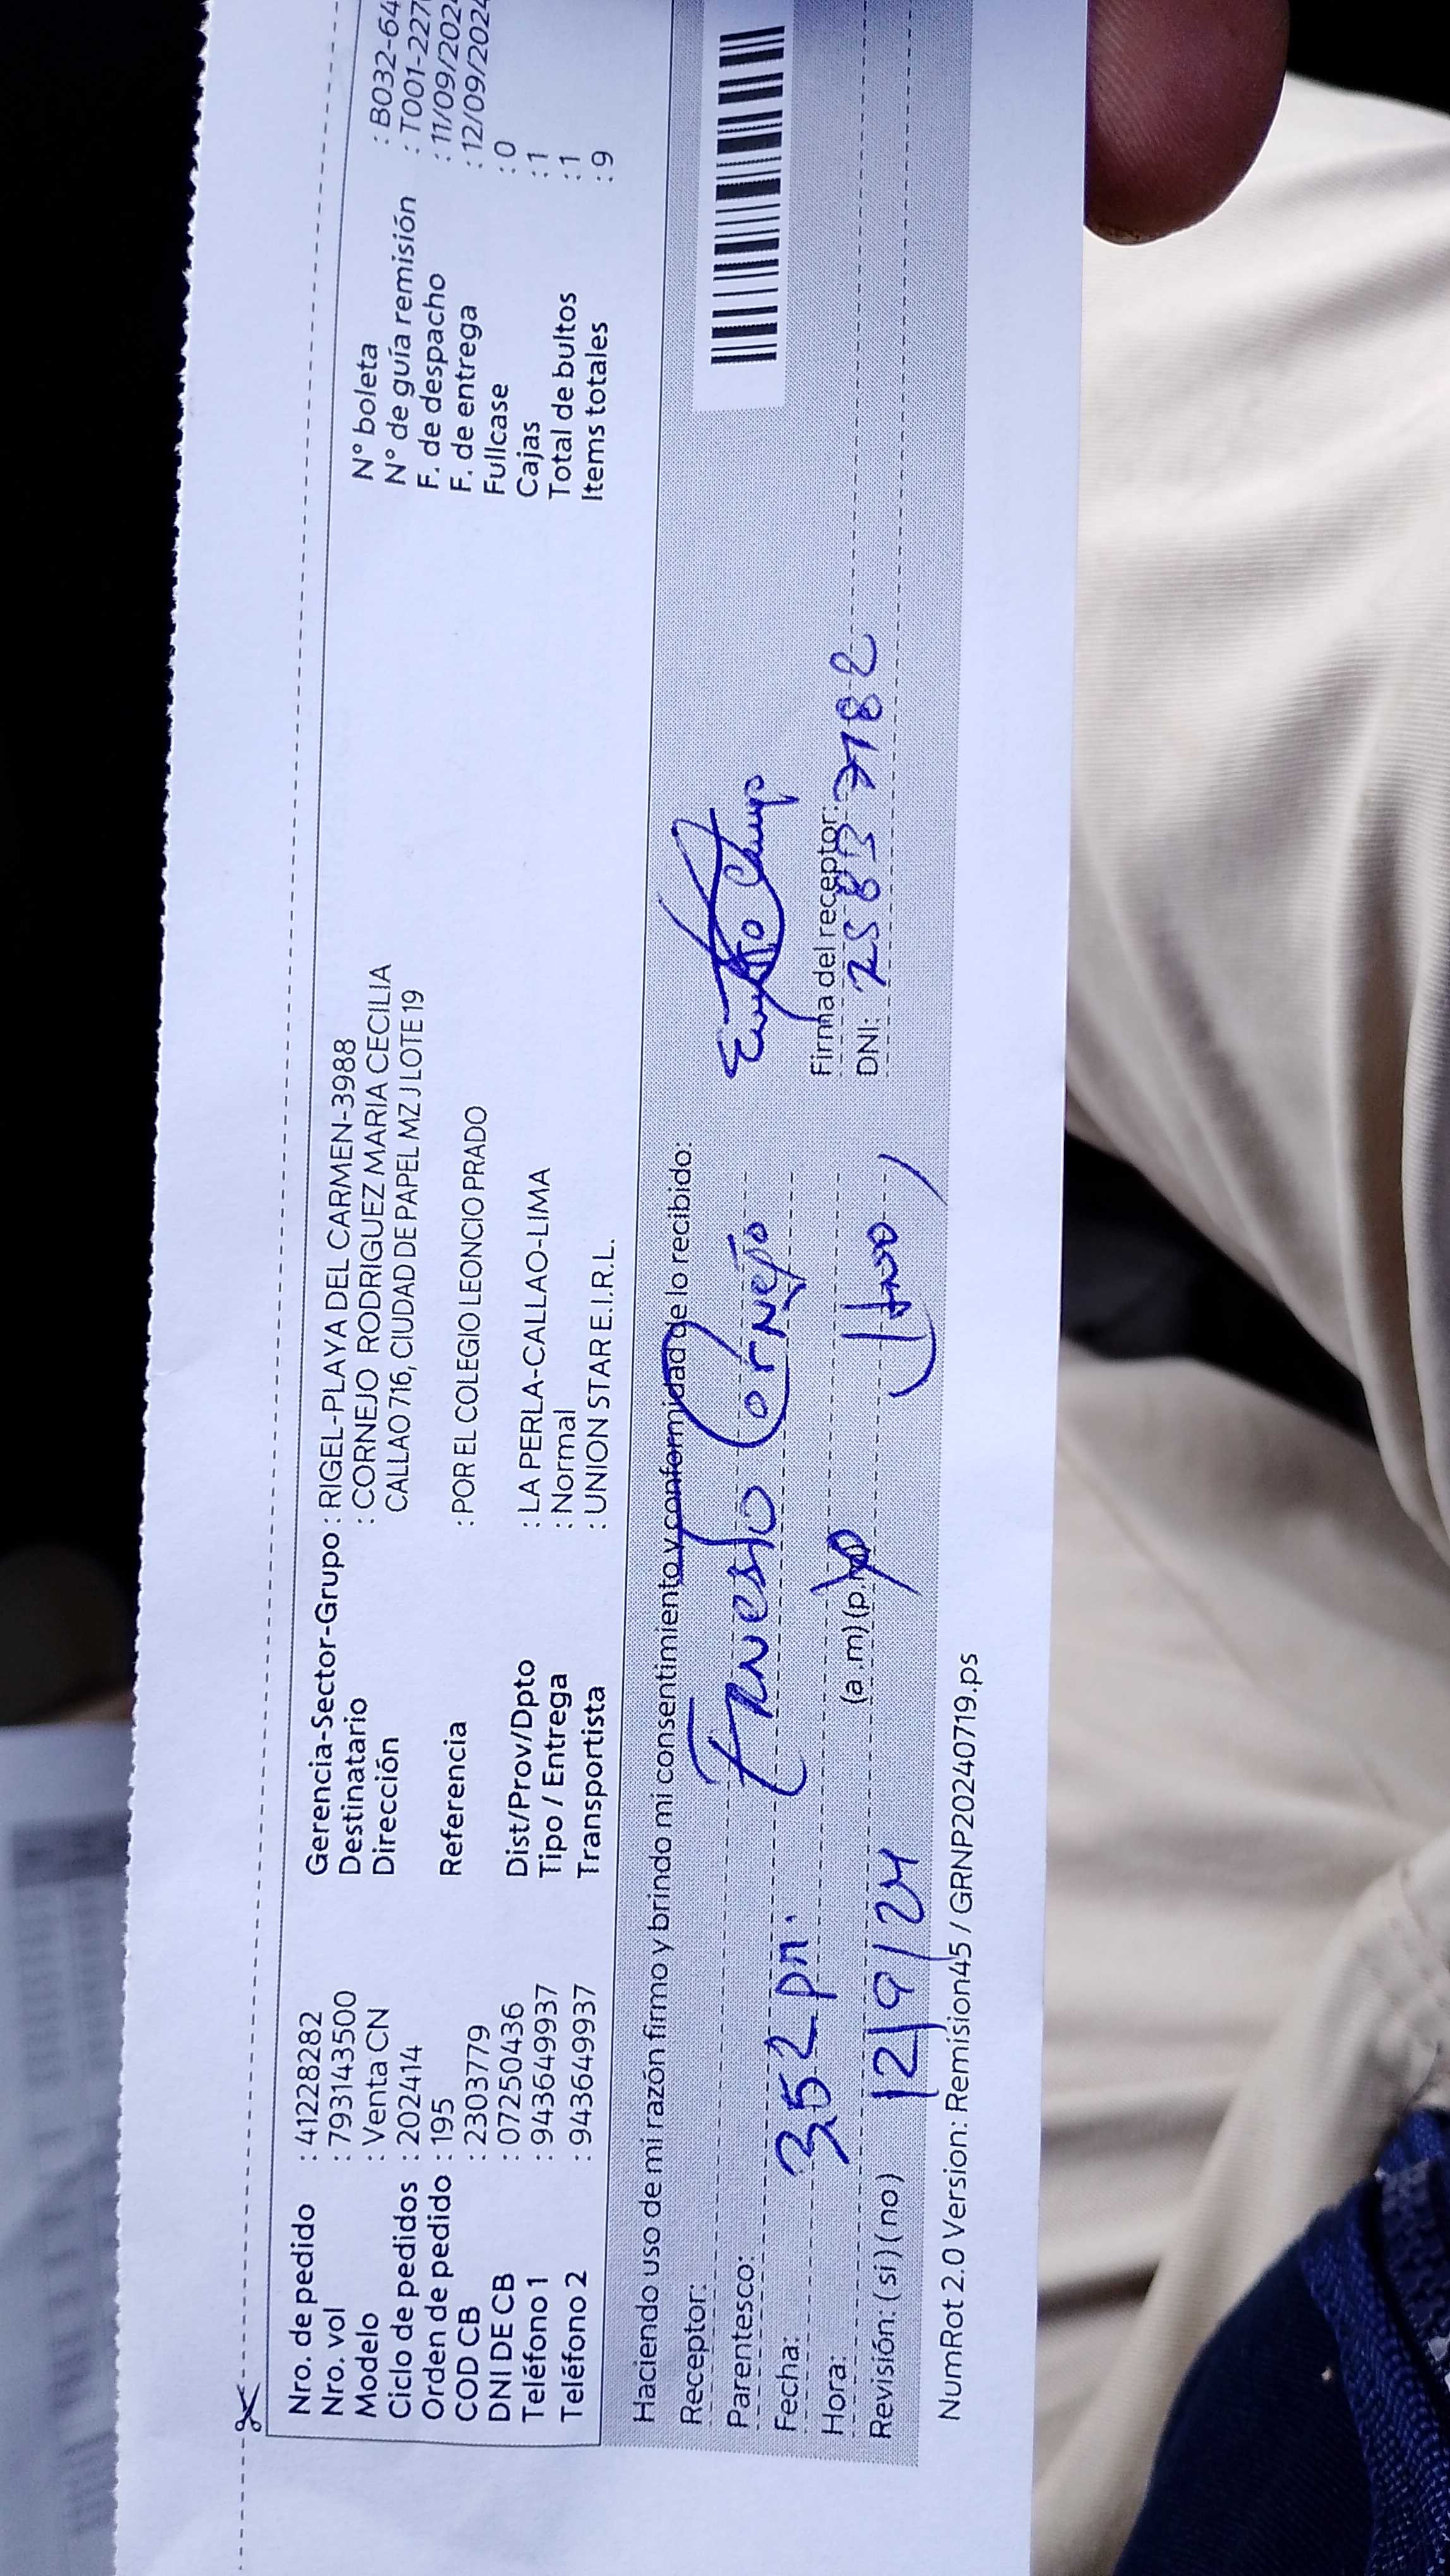 Nro. de pedido : 41228282
Nro. vol : 793143500
Modelo : Venta CN
Ciclo de pedidos : 202414
Orden de pedido : 195
COD CB : 2303779
DNI DE CB : 07250436
Teléfono 1 : 943649937
Teléfono 2 : 943649937
Gerencia-Sector-Grupo : RIGEL-PLAYA DEL CARMEN-3988
Destinatario : CORNEJO RODRIGUEZ MARIA CECILIA
Dirección CALLAO 716, CIUDAD DE PAPEL MZ J LOTE 19
Referencia : POR EL COLEGIO LEONCIO PRADO
Dist/Prov/Dpto : LA PERLA-CALLAO-LIMA
Tipo / Entrega : Normal
Transportista : UNION STAR E.I.R.L.
N° boleta : B032-64
N° de guía remisión : T001-227
F. de despacho : 11/09/202
F. de entrega : 12/09/2024
Fullcase : 0
Cajas : 1
Total de bultos : 1
Items totales : 9
Haciendo uso de mi razón firmo y brindo mi consentimiento y conformidad de lo recibido:
Receptor:
Parentesco: Ernesto Cornejo
Fecha: 3,52 pm.
Firma del receptor:
Hora: (a.m) (p.
Revisión: (si) (no) 12/9/24
DNI: 25837182
NumRot 2.0 Version: Remision45 / GRNP20240719.ps